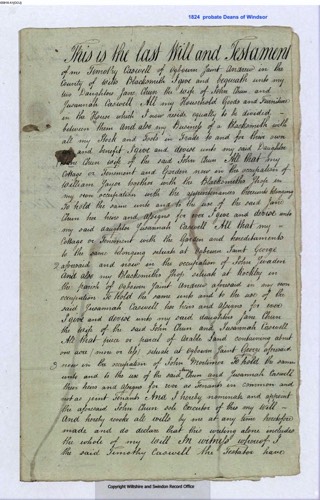 1824 probate Deans of Windsor
This is the last Will and Testament
of me Timothy Caswell of Ogbourn Saint Andrew in the
County of Wilts Blacksmith I give and bequeath unto my
two Daughters Jane Chun the wife of John Chun and
Susannah Caswell All my Household Goods and Furniture
in the House which I now reside equally to be divided
between them And also my Business of a Blacksmith with
all my Stock and Tools in Trade to and for their own
and benefit I give and devise unto my said Daughter
Jane Chun wife of the said John Chun All that my
Cottage or Tenement and Garden now in the occupation of
William together with the Blacksmiths Shop in
my own occupation with the appurtenances thereunto belonging
To hold the same unto and to the use of the said Jane
Chun her heirs and assigns for ever I give and devise unto
my said daughter Susannah Caswell All that my
Cottage or Tenement with the Garden and hereditaments
to the same belonging situate at Ogbourn Saint George
aforesaid and now in the occupation of John
And also my Blacksmiths Shop situate at Rockley in
the parish of Ogbourn Saint Andrew aforesaid in my own
occupation To Hold the same unto and to the use of the
said Susannah Caswell her heirs and assigns for ever
I give and devise unto my said daughters Jane Chun
the wife of the said John Chun and Susannah Caswell
All that piece or parcel of Arable Land containing about
one acre (more or less) situate at Ogbourn Saint George aforesaid
now in the occupation of John To hold the same
unto and to the use of the said Chun and Susannah Caswell
their heirs and assigns for ever as tenants in common and
not as joint Tenants And I hereby nominate and appoint
the aforesaid John Chun sole Executor of this my Will
And hereby revoke all wills by me at any time heretofore
made and do declare that this writing alone includes
the whole of my Will In witness whereof I
the said Timothy Caswell the Testator have
Copyright Wiltshire and Swindon Record Office